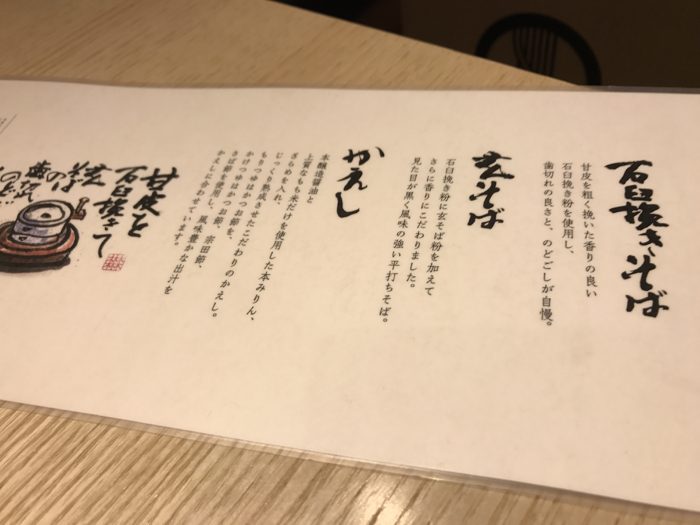 石臼挽きそば
甘皮を粗く挽いた香りの良い
石臼挽き粉を使用し、
歯切れの良さと、のどごしが自慢。
玄そば
石臼挽き粉に玄そば粉を加えて
さらに香りにこだわりました。
見た目が黒く風味の強い平打ちそば。
かえし
本醸造醤油と
上質なもち米だけを使用した本みりん、
ざらめを入れ、
じっくり熟成させたこだわりのかえし。
もりつゆはかつお節を、
かけつゆはかつお節、宗田節、
さば節を使用し、風味豊かな出汁を
かえしに合わせています。
甘皮と
石臼挽きて
玄
そばの